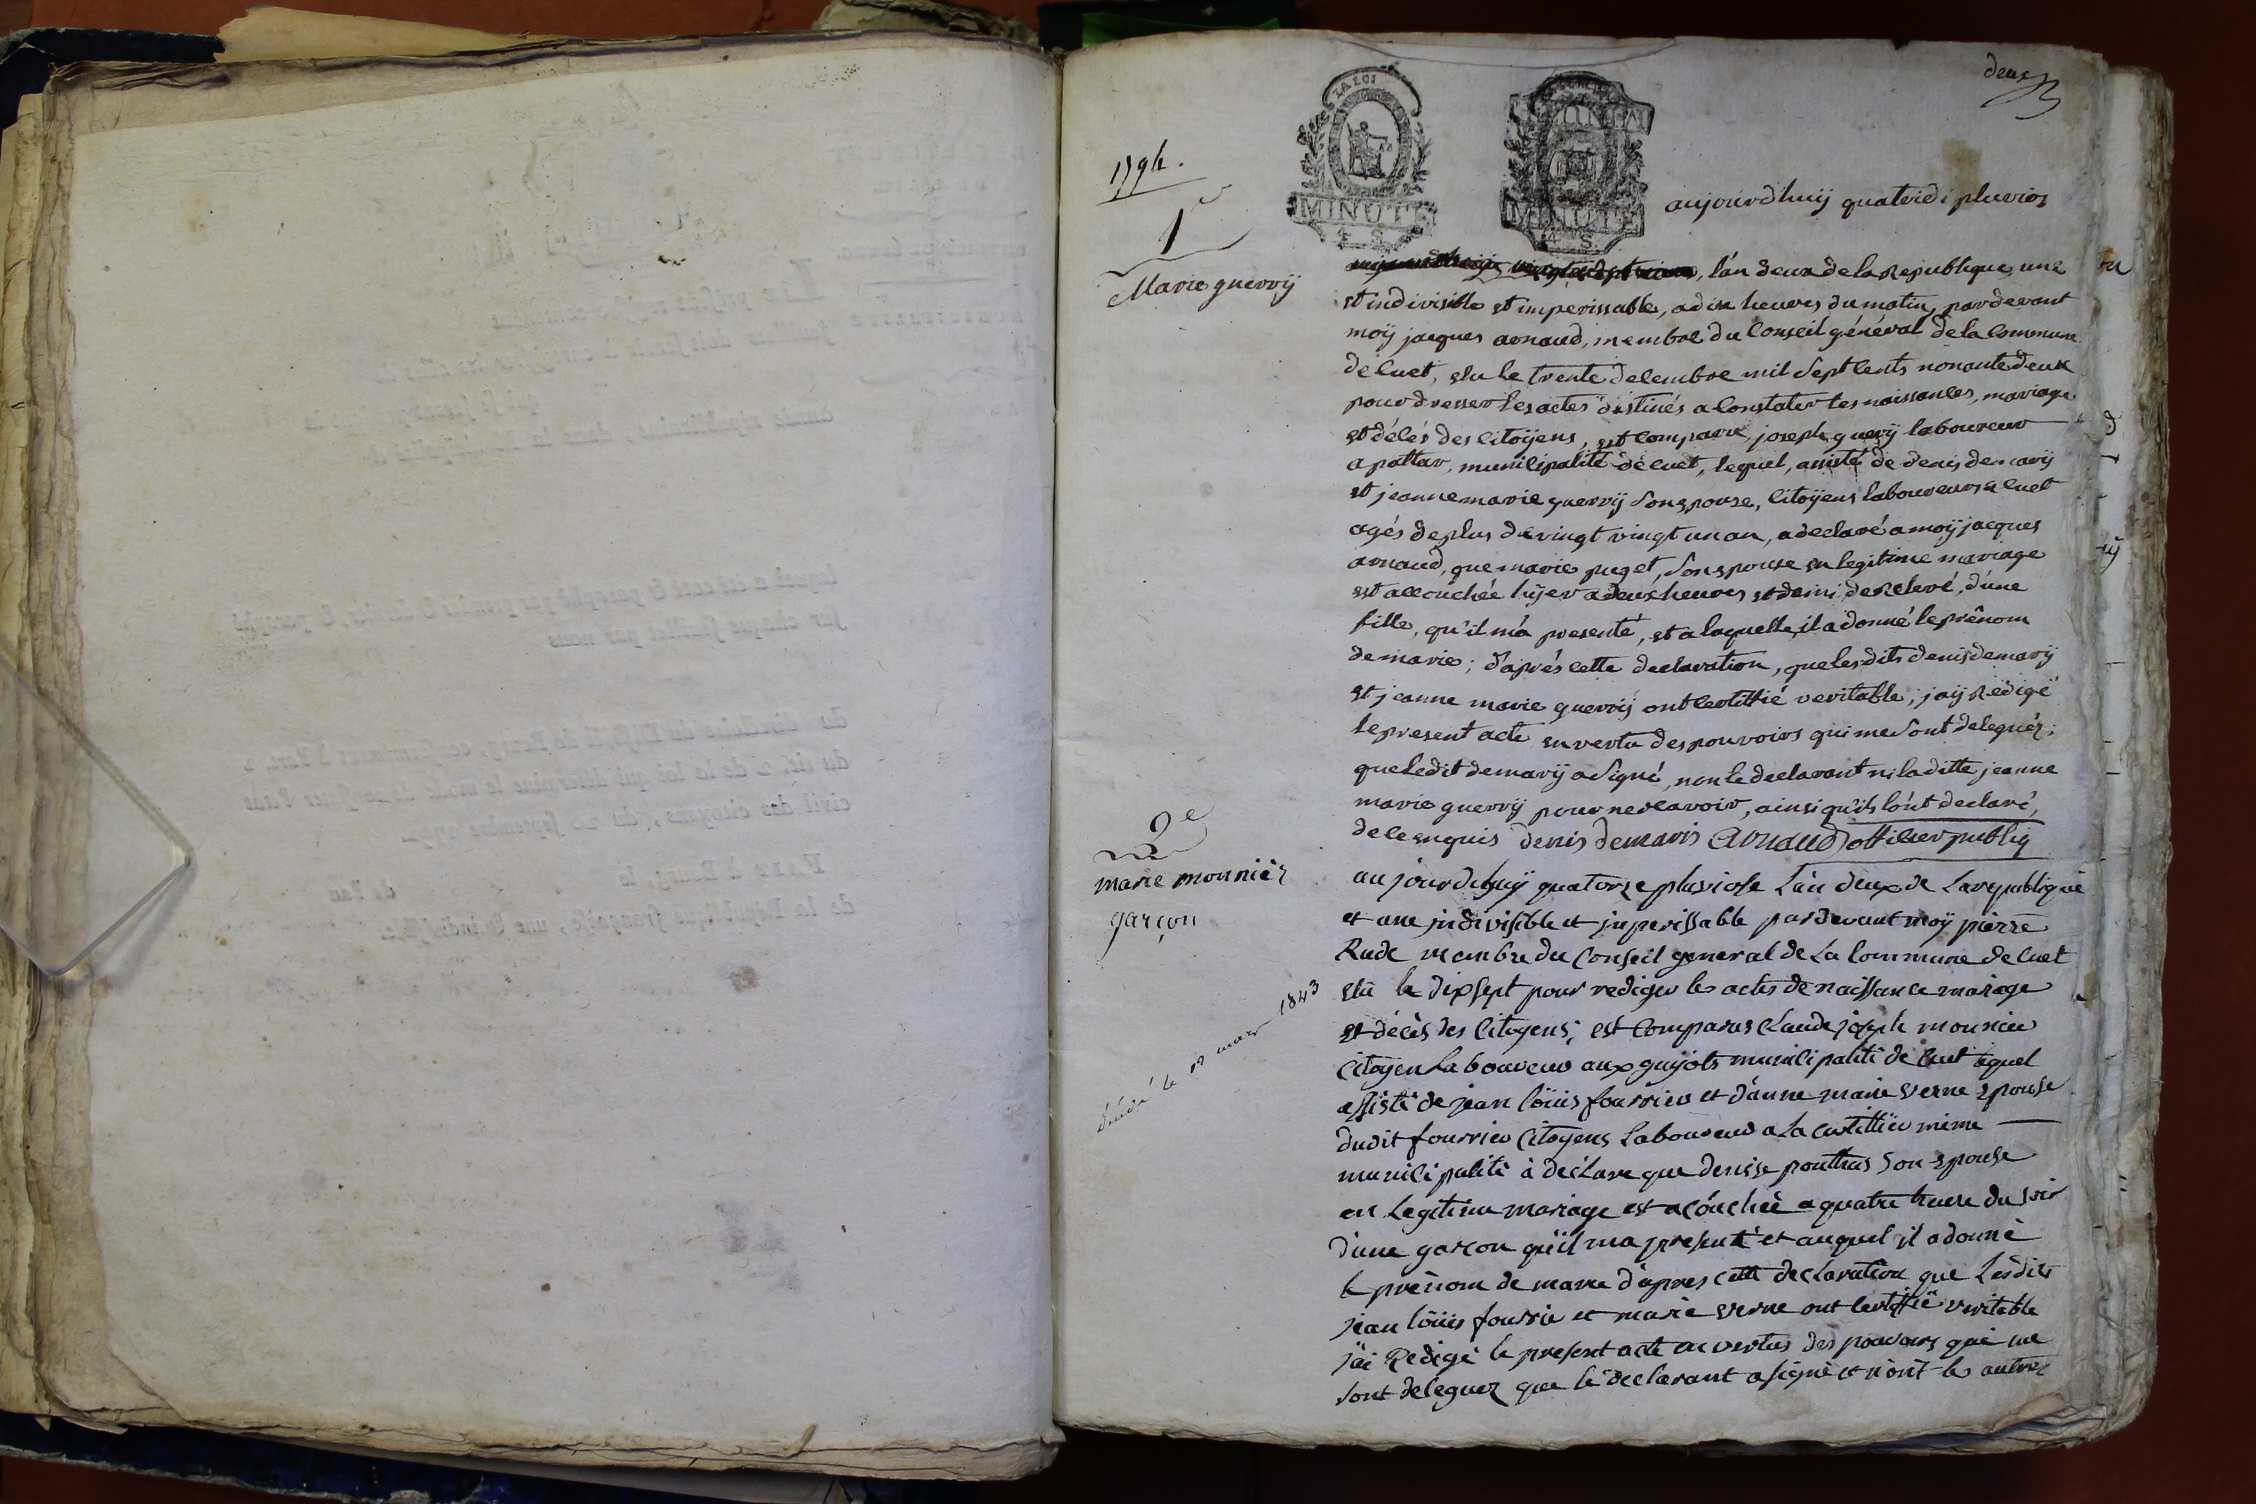 deux
1794.
1e
Marie guerrÿ
LA LOI
MINUTE
4 S.
MINUTE
4 S.
aujourdhuÿ quatridi pluvios
, l'an deux de la Republique, une
et indivisible et imperissable, a dix heures du matin, pardevant
moÿ jacques arnaud, membre du Conseil général de la Commune
de Cuet, elu le trente decembre mil Sept Cents nonante deux
pour dresser les actes destinés a Constater les naissances, mariage
et décés des Citoÿens, est Comparu, joseph guerÿ laboureur
a pattar, municipalité de Cuet, lequel, assisté de denis demarÿ
et jeanne marie guerrÿ Son epouse, Citoÿens laboureurs a Cuet
agés de plus de vingt vingt un an, a declaré a moÿ jacques
arnaud, que marie puget, Son epouse en legitime mariage
est accouchée hÿer a deux heures et demi de Relevé, d'une
fille, qu'il m'a presenté, et a laquelle, il a donné le prênom
de marie; d'aprés Cette declaration, que les dits denis demarÿ
et jeanne marie guerrÿ ont Certiffié veritable, j'aÿ Rédigé
le present acte en vertu des pouvoirs qui me Sont delegués;
que le dit demarÿ a Signé, non le declarant ni la ditte jeanne
marie guerrÿ pour ne Scavoir, ainsi qu'ils l'ont declaré,
de Ce enquis denis demaris Arnaud officier publiq
2e
marie monnier
garçon
décédé le 19 mars 1843
aujourdhuÿ quatorze pluviose L'an deux de La republique
et une indivisible et inperissable pardevant moÿ pierre
Rude membre du Conseil general de La Commune de Cuet
elu le dixsept pour rediger les actes de naissance mariage
et décès des Citoyens; est Comparus Claude joseph monnier
Citoÿen Laboureur aux guÿots municipalité de Cuet lequel
assisté de jean loüis fourrier et d'anne marie verne epouse
dudit fourrier Citoyens Laboureurs a La même
municipalité à déclare que denisse ponthus Son epouse
en Legitime mariage est acouchée a quatre heure du soir
d'une garcon qu'il ma presenté et auquel il a donné
le prénom de marie d'apres Cette declaration que Lesdits
jean loüis fourrie et marie verne ont Certiffié veritable
j'ai Redigé le present acte en vertus des pouvoirs qui me
sont deleguez que le declarant a signé et n'ont les autres